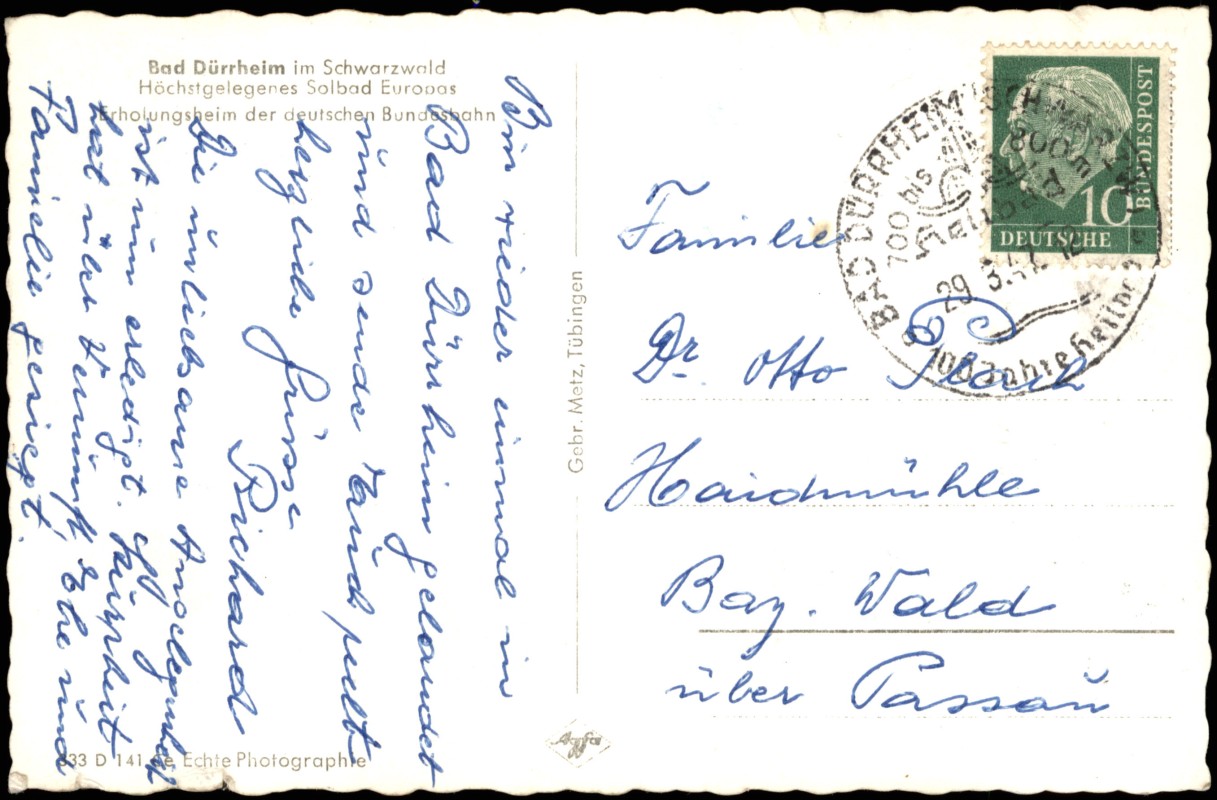 Bad Dürrheim im Schwarzwald
Höchstgelegenes Solbad Europas
Erholungsheim der deutschen Bundesbahn
Bin wieder einmal in
Bad Dürrheim gelandet
und sende Euch recht
herzliche Grüsse
Richard
Die unliebsame Angelegenheit
ist nun erledigt.
hat über Vernunft, Ehe und
Familie gesiegt.
833 D 141 Echte Photographie
Gebr. Metz, Tübingen
Agfa
BAD DÜRRHEIM SCHWARZWALD
700 bis 800 m
Heilbad
29 3. 12
100 Jahre Heilbad
10
BUNDESPOST
DEUTSCHE
Familie
Dr. Otto
Haidmühle
Bay. Wald
über Passau